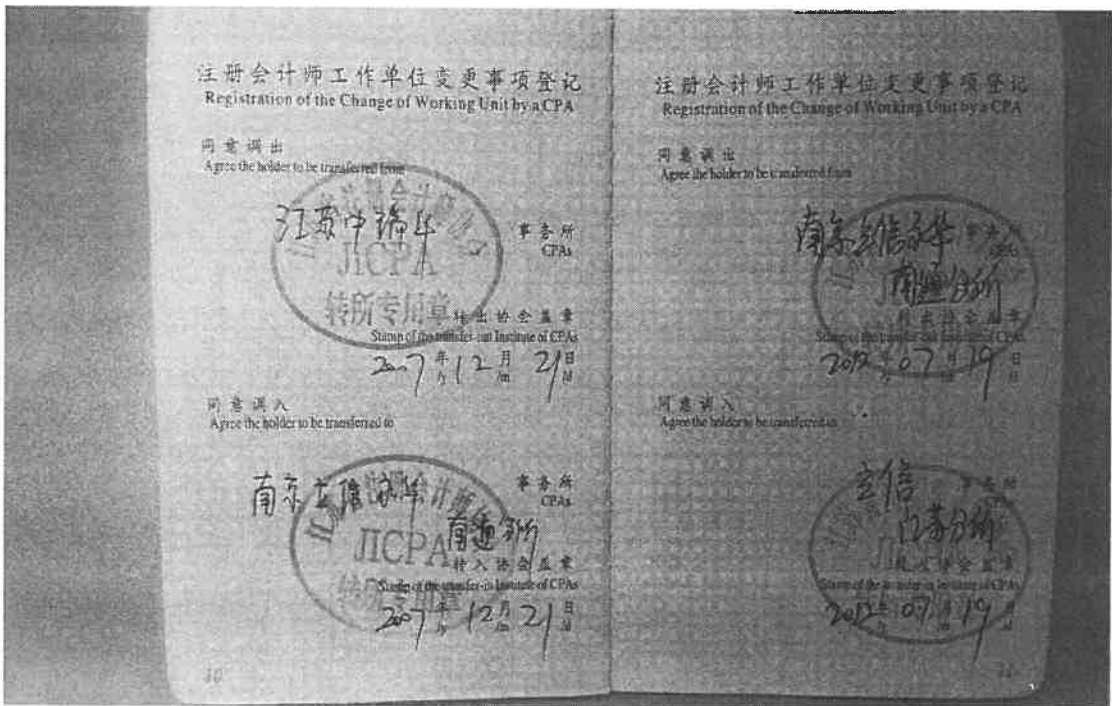 注册会计师工作单位变更事项登记
Registration of the Change of Working Unit by a CPA
同意调出
Agree the holder to be transferred from
江苏中瑞华
事务所
CPAs
JICPA
转所专用章
转出协会盖章
Stamp of the transfer-out Institute of CPAs
2007年12月21日
/y /m /d
同意调入
Agree the holder to be transferred to
南京立信永华
事务所
CPAs
南通分所
JICPA
转入协会盖章
Stamp of the transfer-in Institute of CPAs
转所专用章
2007年12月21日
/y /m /d
10
注册会计师工作单位变更事项登记
Registration of the Change of Working Unit by a CPA
同意调出
Agree the holder to be transferred from
南京立信永华
CPAs
南通分所
转出协会盖章
Stamp of the transfer-out Institute of CPAs
2012年07月19日
同意调入
Agree the holder to be transferred to
立信
事务所
CPAs
江苏分所
转入协会盖章
Stamp of the transfer-in Institute of CPAs
2012年07月19日
11